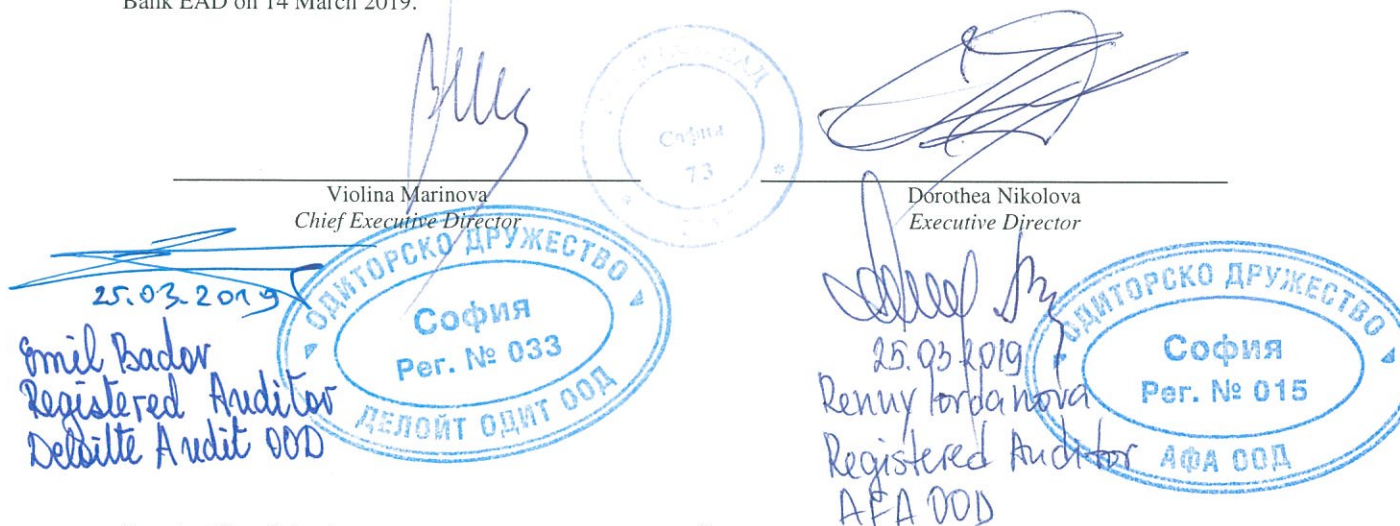 Bank EAD on 14 March 2019.
София
73
Violina Marinova
Chief Executive Director
Dorothea Nikolova
Executive Director
25.03.2019
Emil Badov
Registered Auditor
Deloitte Audit OOD
ОДИТОРСКО ДРУЖЕСТВО
София
Рег. № 033
ДЕЛОЙТ ОДИТ ООД
25.03.2019
Renny Iordanova
Registered Auditor
AFA OOD
ОДИТОРСКО ДРУЖЕСТВО
София
Рег. № 015
АФА ООД